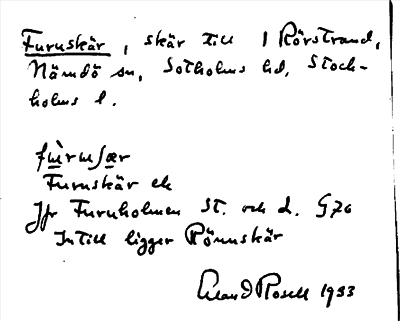 Furuskär, skär till 1 Rörstrand,
Nämdö sn, Sotholms hd, Stock-
holms l.
Furuskär ek
Jfr Furuholmen St. och L. G76
Intill ligger Rönnskär
Erland Rosell 1933